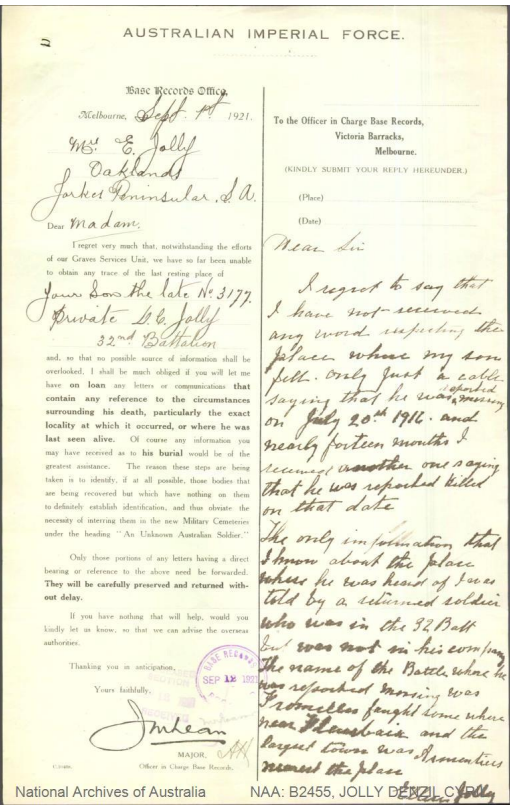 AUSTRALIAN IMPERIAL FORCE.
Base Records Office,
Melbourne, Sept. 1st 1921.
Mrs E. Jolly
Oaklands
Yorkes Peninsular. S.A.
Dear Madam.
I regret very much that, notwithstanding the efforts
of our Graves Services Unit, we have so far been unable
to obtain any trace of the last resting place of
Your Son the late No. 3177.
Private D.C. Jolly
32nd Battalion
and, so that no possible source of information shall be
overlooked, I shall be much obliged if you will let me
have on loan any letters or communications that
contain any reference to the circumstances
surrounding his death, particularly the exact
locality at which it occurred, or where he was
last seen alive. Of course any information you
may have received as to his burial would be of the
greatest assistance. The reason these steps are being
taken is to identify, if at all possible, those bodies that
are being recovered but which have nothing on them
to definitely establish identification, and thus obviate the
necessity of interring them in the new Military Cemeteries
under the heading "An Unknown Australian Soldier."
Only those portions of any letters having a direct
bearing or reference to the above need be forwarded.
They will be carefully preserved and returned with-
out delay.
If you have nothing that will help, would you
kindly let us know, so that we can advise the overseas
authorities.
Thanking you in anticipation,
Yours faithfully,
JMLean
MAJOR,
Officer in Charge Base Records.
BASE RECORDS
SEP 12 1921
To the Officer in Charge Base Records,
Victoria Barracks,
Melbourne.
(KINDLY SUBMIT YOUR REPLY HEREUNDER.)
(Place)
(Date)
Dear Sir
I regret to say that
I have not received
any word respecting the
place where my son
fell. only just a cable
saying that he was reported missing
on July 20th 1916. and
nearly forteen months I
received another one saying
that he was reported killed
on that date
The only information that
I know about the place
where he was heard of I was
told by a returned soldier
who was in the 32 Batt
but was not in his company
The name of the Battle where he
was reported missing was
Fromelles fought some where
near Fleurbaix and the
largest town was Armentiers
nearest the place
Jolly
National Archives of Australia
NAA: B2455, JOLLY DENZIL CYRIL